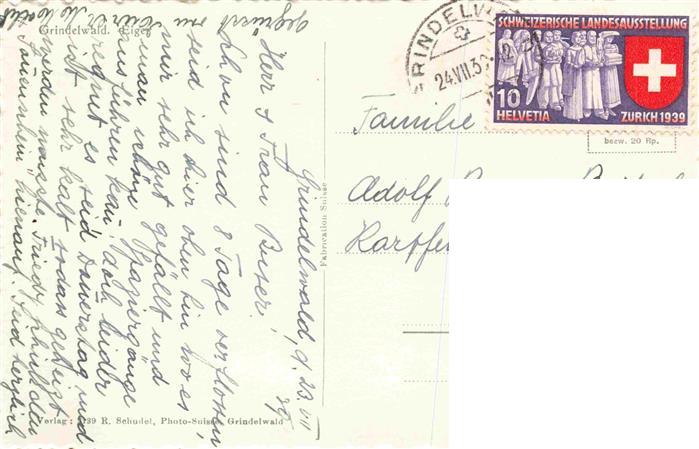 Grindelwald. Eiger
Grindelwald, d. 23. VII
39
Herr & Frau Buser!
Schon sind 8 Tage verflossen,
seid ich hier oben bin wo es
mir sehr gut gefällt und
man schöne Spaziergänge
ausführen kan, doch leider
regnet es seid Donerstag und
ist sehr kalt sodass geheizt
werden musste. Friedy
hienauf. Seid herzlich
gegrüsst von
Verlag: R. Schudel, Photo-Suisse, Grindelwald
Fabrication Suisse
GRINDELW
24.VII.39
SCHWEIZERISCHE LANDESAUSSTELLUNG
10
HELVETIA
ZÜRICH 1939
bezw. 20 Rp.
Familie
Adolf
Karpfe